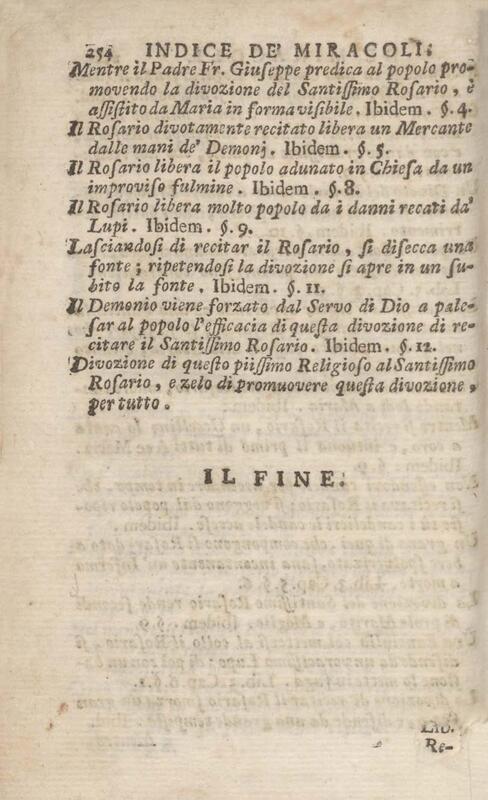 254 INDICE DE' MIRACOLI.
Mentre il Padre Fr. Giuseppe predica al popolo pro-
movendo la divozione del Santissimo Rosario, è
assistito da Maria in forma visibile. Ibidem. §. 4.
Il Rosario divotamente recitato libera un Mercante
dalle mani de' Demonj. Ibidem. §. 5.
Il Rosario libera il popolo adunato in Chiesa da un
improviso fulmine. Ibidem. §. 8.
Il Rosario libera molto popolo da i danni recati da'
Lupi. Ibidem. §. 9.
Lasciandosi di recitar il Rosario, si disecca una
fonte; ripetendosi la divozione si apre in un su-
bito la fonte. Ibidem. §. 11.
Il Demonio viene forzato dal Servo di Dio a pale-
sar al popolo l'efficacia di questa divozione di re-
citare il Santissimo Rosario. Ibidem. §. 12.
Divozione di questo piissimo Religioso al Santissimo
Rosario, e zelo di promuovere questa divozione,
per tutto.
IL FINE.
LIB.
Re-